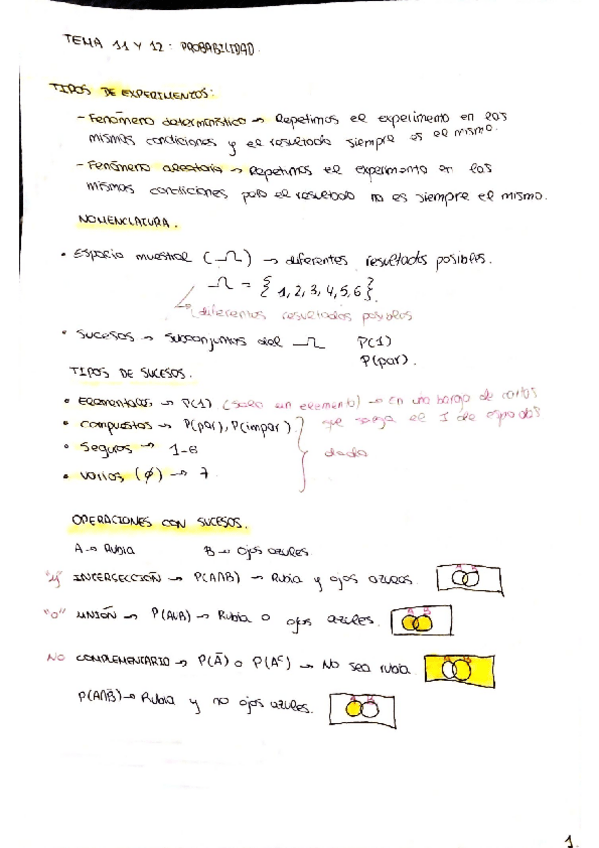 TEMA 11 Y 12: PROBABILIDAD.
TIPOS DE EXPERIMENTOS:
- Fenómeno determinístico → Repetimos el experimento en las
mismas condiciones y el resultado siempre es el mismo.
- Fenómeno aleatorio → Repetimos el experimento en las
mismas condiciones pero el resultado no es siempre el mismo.
NOMENCLATURA.
• Espacio muestral (Ω) → diferentes resultados posibles.
Ω = {1, 2, 3, 4, 5, 6}
diferentes resultados posibles
• Sucesos → subconjuntos del Ω P(1)
P(par).
TIPOS DE SUCESOS.
• Elementales → P(1) (solo un elemento) → En una baraja de cartas
• Compuestos → P(par), P(impar) que salga el 1 de espadas
• Seguros → 1-6
dado
• Vacíos (Ø) → 7
OPERACIONES CON SUCESOS.
A → Rubia B → Ojos azules
"y" INTERSECCIÓN → P(A∩B) → Rubia y ojos azules.
A B
"o" UNIÓN → P(A∪B) → Rubia o ojos azules.
A B
NO COMPLEMENTARIO → P(Ā) o P(Aᶜ) → No sea rubia
A B
P(A∩B̄) → Rubia y no ojos azules.
A B
1.